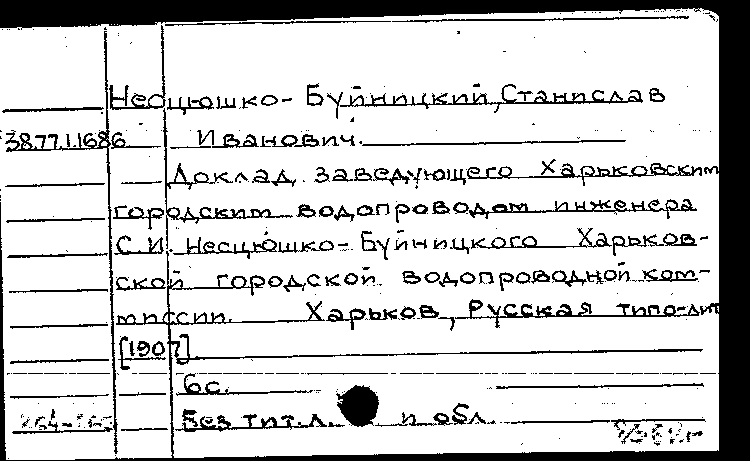 Несцюшко-Буйницкий, Станислав
38.77.1.1686 Иванович.
Доклад заведующего Харьковским
городским водопроводом инженера
С.И. Несцюшко-Буйницкого Харьков-
ской городской водопроводной ком-
миссии. Харьков, Русская типо-лит
[1907]
6с.
Без тит.л. и обл.